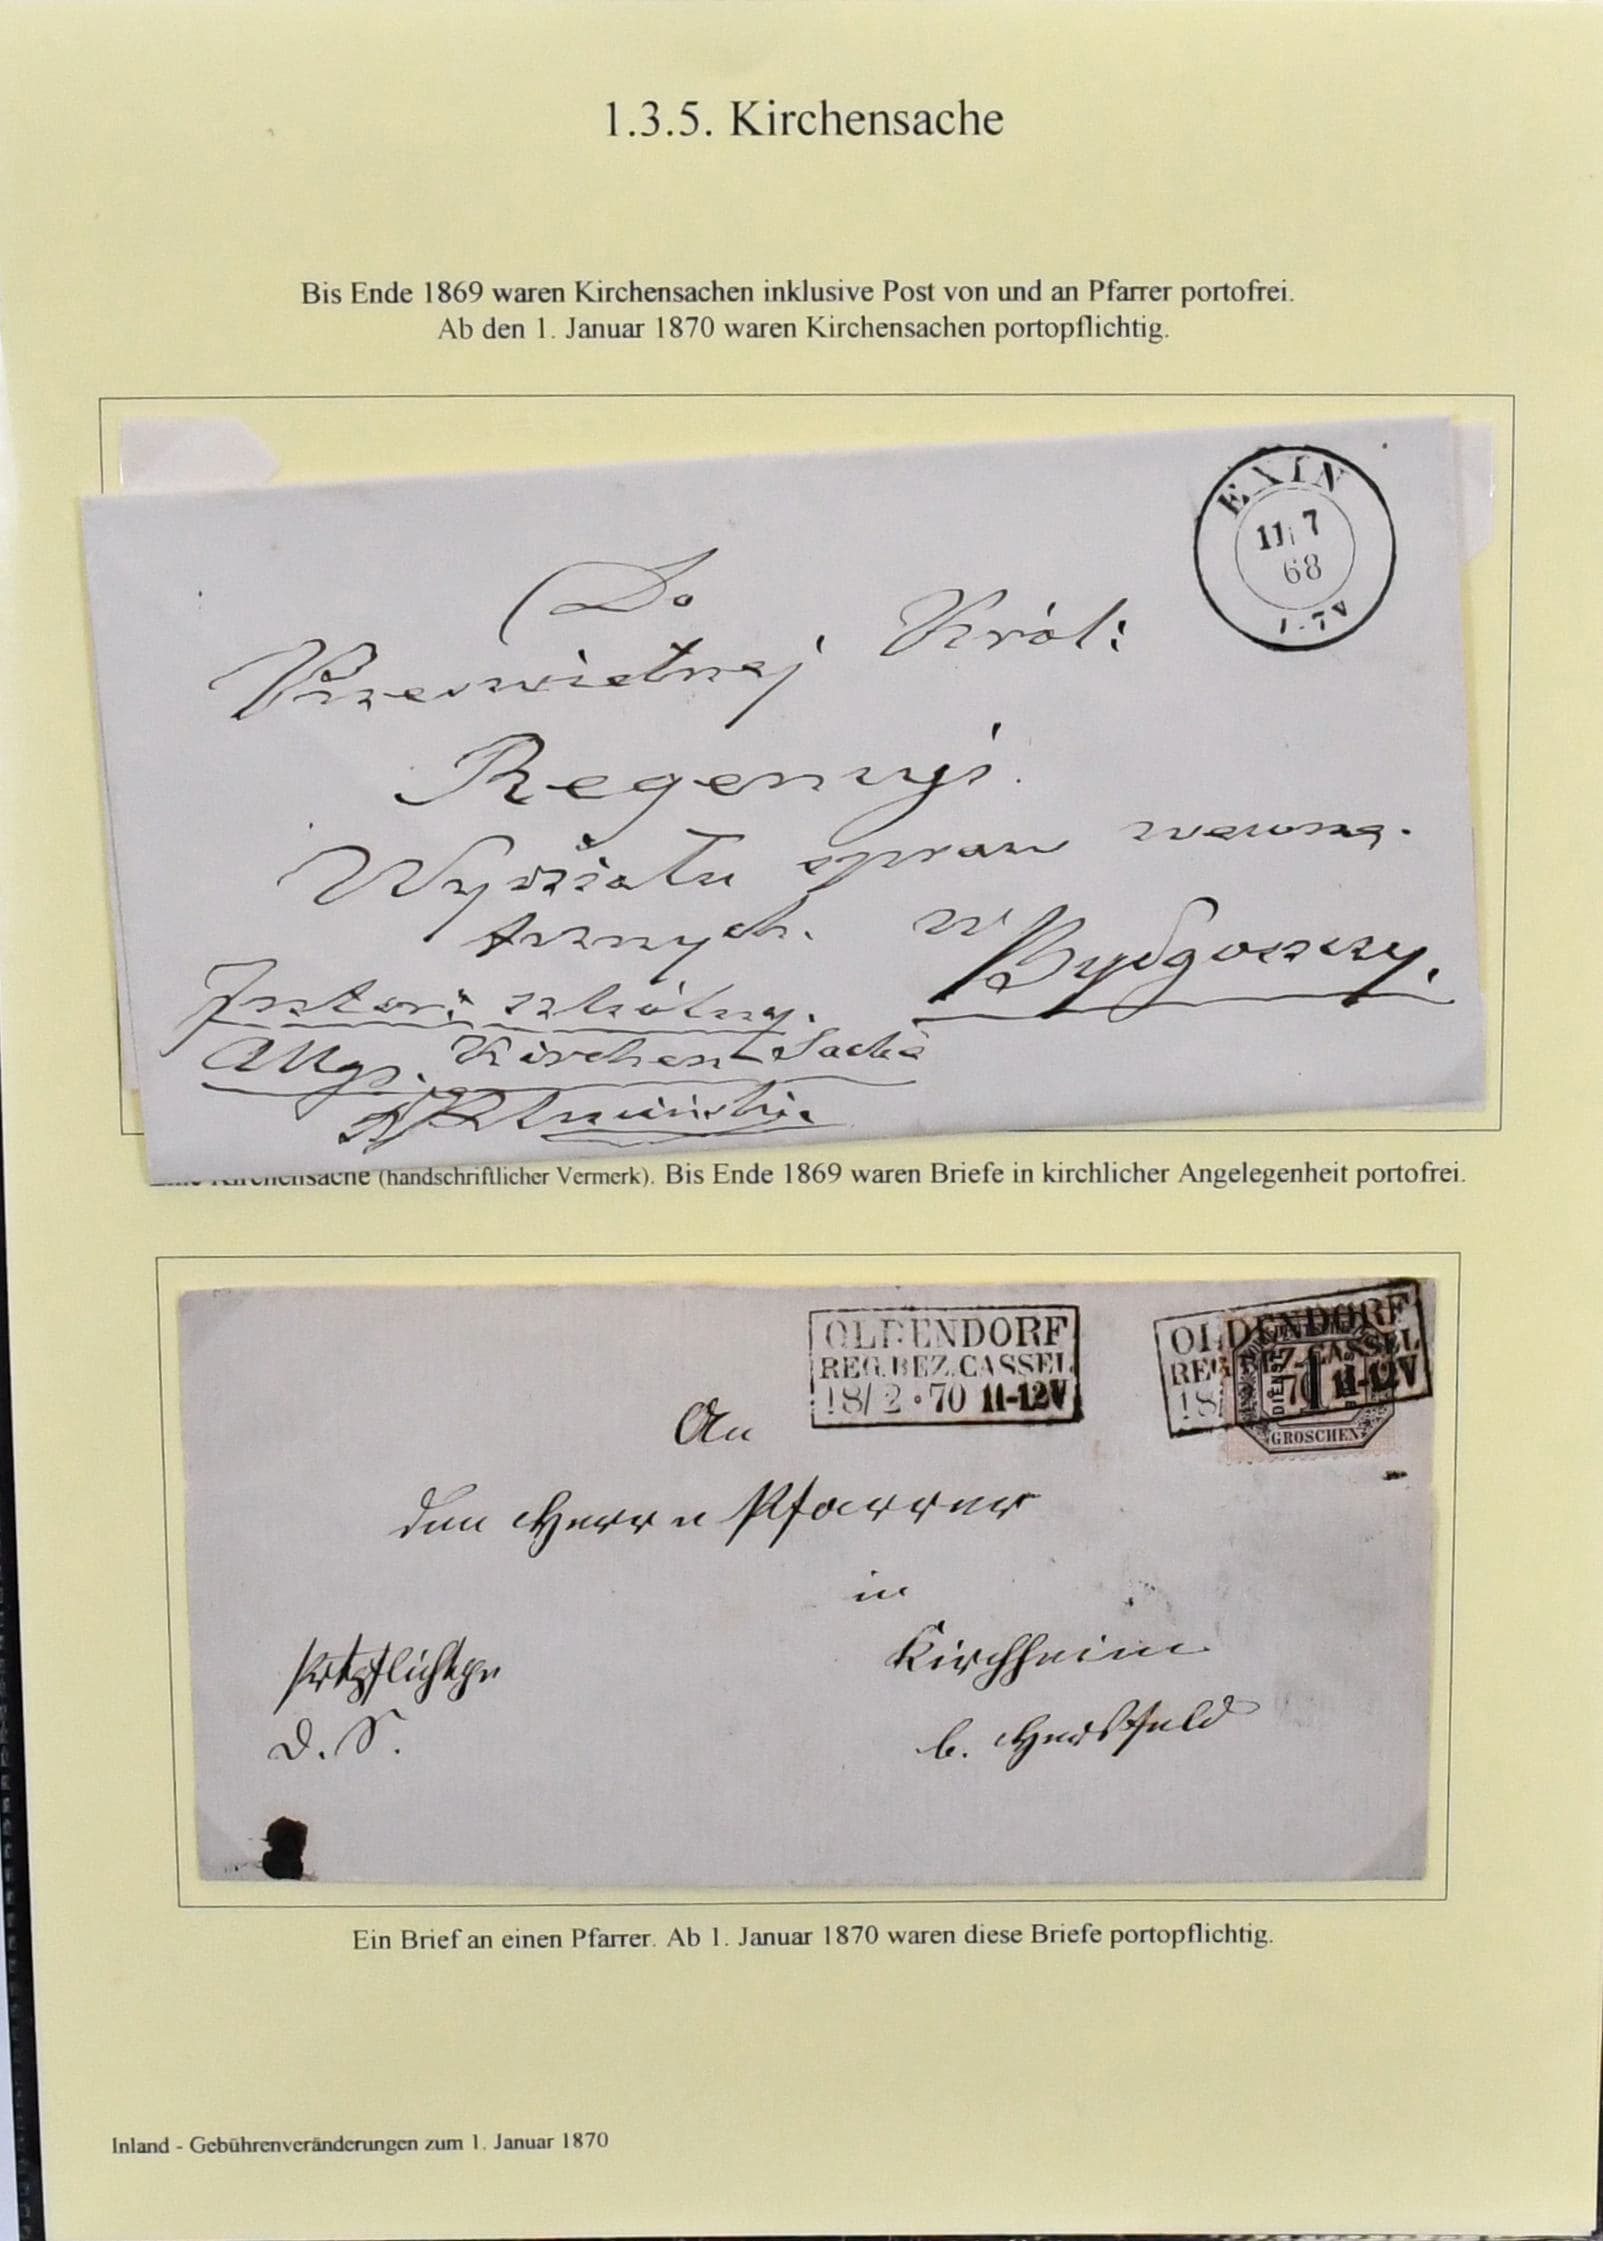 1.3.5. Kirchensache
Bis Ende 1869 waren Kirchensachen inklusive Post von und an Pfarrer portofrei.
Ab den 1. Januar 1870 waren Kirchensachen portopflichtig.
EXIN
11 7
68
Do
Prześwietnej Król:
Regencyi.
Wydziału spraw wewnę-
trznych. w Bydgoszczy.
szkólny.
Allg. Kirchen-Sache
Kirchensache (handschriftlicher Vermerk). Bis Ende 1869 waren Briefe in kirchlicher Angelegenheit portofrei.
OLDENDORF
REG.BEZ.CASSEL
18/2·70 11-12V
OLDENDORF
REG.BEZ.CASSEL
18/ 70 11-12V
1
GROSCHEN
An
den Herrn Pfarrer
in
Kirchheim
b. Hersfeld
portopflichtige
D. S.
Ein Brief an einen Pfarrer. Ab 1. Januar 1870 waren diese Briefe portopflichtig.
Inland - Gebührenveränderungen zum 1. Januar 1870